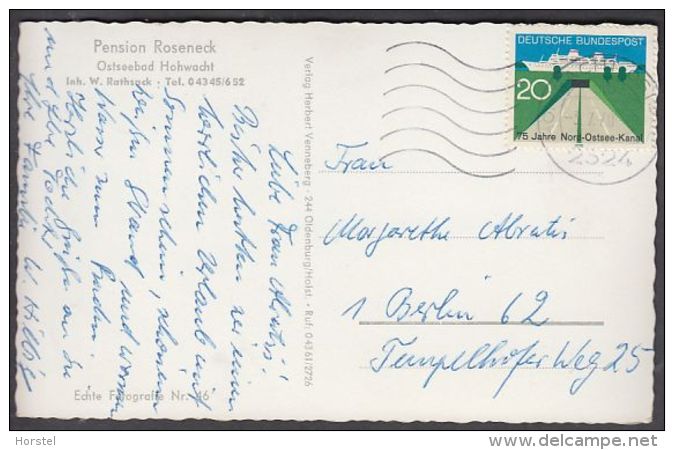 Pension Roseneck
Ostseebad Hohwacht
Inh. W. Rathsack · Tel. 04345/652
Liebe Frau Abratis!
Bisher hatten wir einen
herrlichen Urlaub mit
Sonnenschein, schönen
Strand und
warm zum Baden.
Herzliche Grüße an Sie
und Ihre Tochter
Ihre Familie W.
Echte Fotografie Nr. 46
Verlag Herbert Venneberg · 244 Oldenburg/Holst. · Ruf: 04361/2726
DEUTSCHE BUNDESPOST
20
75 Jahre Nord-Ostsee-Kanal
2324
Frau
Margarethe Abratis
1 Berlin 62
Tempelhofer Weg 25
Horstel
www.delcampe.net